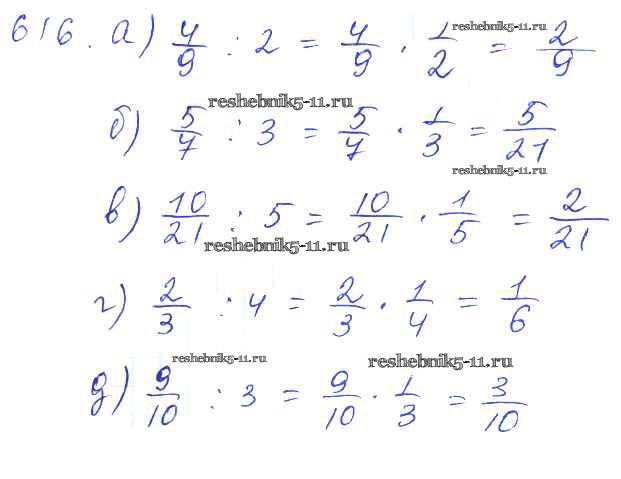 reshebnik5-11.ru
616. а) 4/9 : 2 = 4/9 · 1/2 = 2/9
reshebnik5-11.ru
б) 5/7 : 3 = 5/7 · 1/3 = 5/21
reshebnik5-11.ru
в) 10/21 : 5 = 10/21 · 1/5 = 2/21
reshebnik5-11.ru
г) 2/3 : 4 = 2/3 · 1/4 = 1/6
reshebnik5-11.ru
reshebnik5-11.ru
д) 9/10 : 3 = 9/10 · 1/3 = 3/10